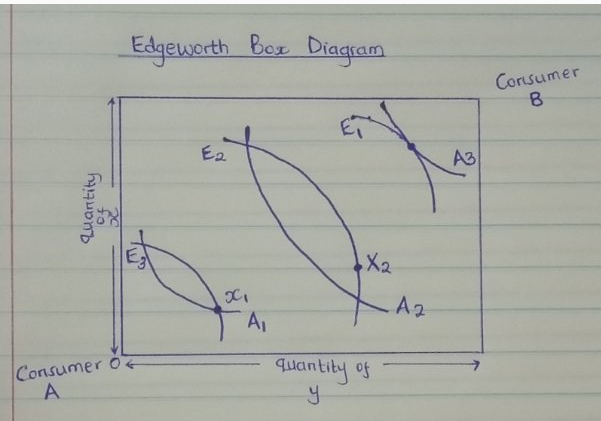 Edgeworth Box Diagram
Consumer
B
E1
A3
E2
quantity
of
x
E3
X2
x1
A1
A2
Consumer
A
O
quantity of
y